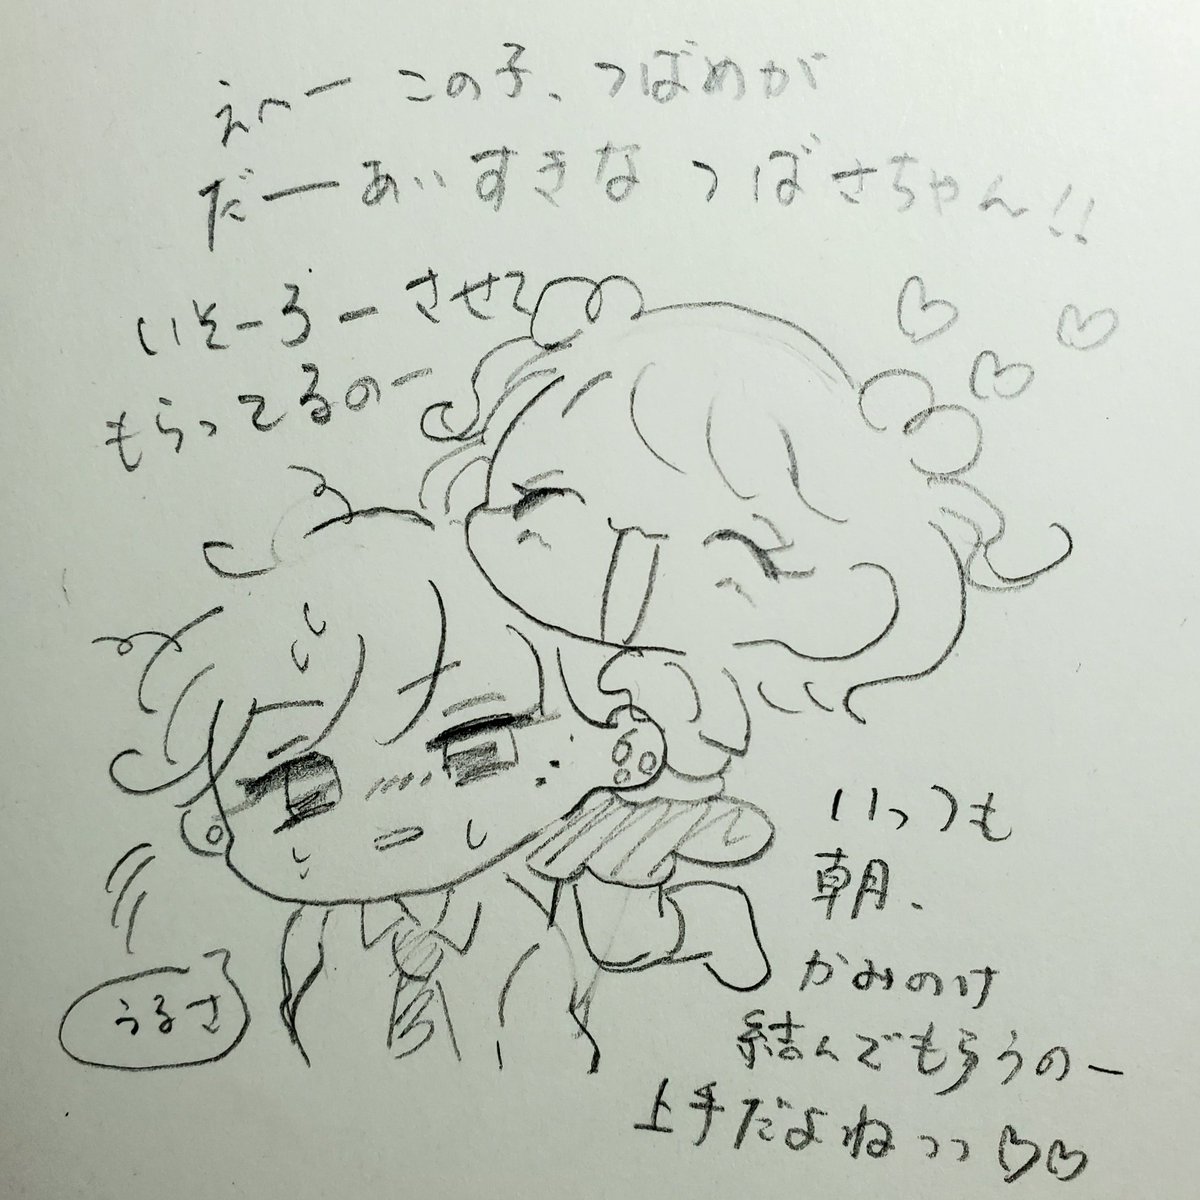 えへー この子、つばめが
だーあいすきな つばさちゃん!!
いそーろーさせて
もらってるのー
いっつも
朝、
かみのけ
結んでもらうのー
上手だよねっっ♡♡
うるさ